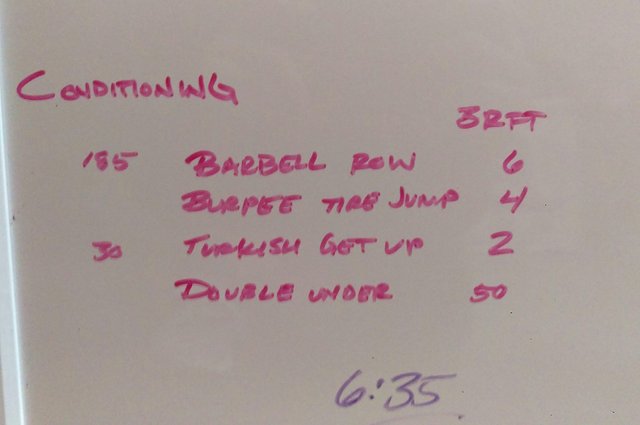 CONDITIONING
3RFT
185 BARBELL ROW 6
BURPEE TIRE JUMP 4
30 TURKISH GET UP 2
DOUBLE UNDER 50
6:35